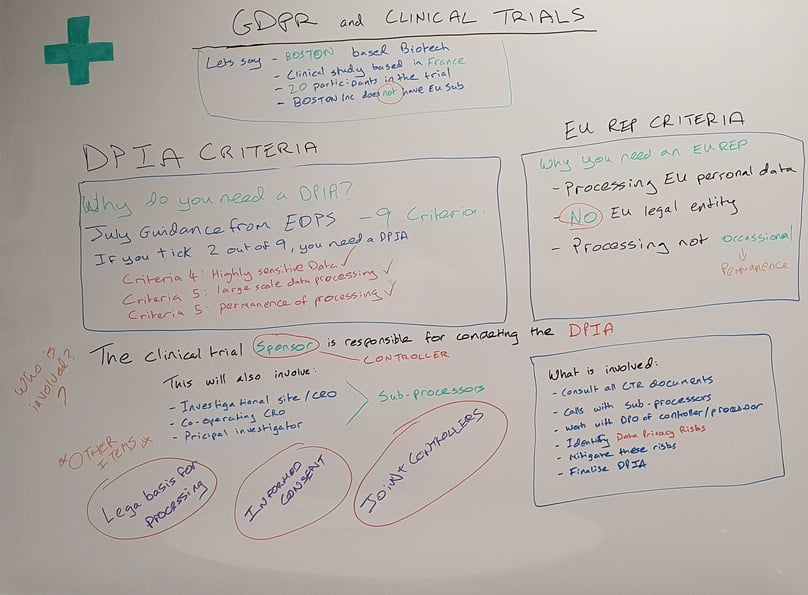 GDPR and CLINICAL TRIALS
Lets say - BOSTON based Biotech
- Clinical study based in France
- 20 participants in the trial
- BOSTON Inc does not have EU sub
DPIA CRITERIA
Why do you need a DPIA?
July Guidance from EDPS - 9 Criteria.
If you tick 2 out of 9, you need a DPIA
Criteria 4: Highly sensitive Data ✓
Criteria 5: large scale data processing ✓
Criteria 5: permanence of processing ✓
EU REP CRITERIA
Why you need an EU REP
- Processing EU personal data
- NO EU legal entity
- Processing not occassional
↓
Permanence
Who is
involved?
?
The clinical trial Sponsor is responsible for competing the DPIA
CONTROLLER
This will also involve:
- Investigational site/CRO
- Co-operating CRO
- Pricipal investigator
Sub-processors
What is involved:
- Consult all CTR documents
- Calls with Sub-processors
- Work with DPO of controller/processor
- Identify Data Privacy Risks
- Mitigate these risks
- Finalise DPIA
* OTHER
ITEMS *
Lega basis for
processing
INFORMED
CONSENT
JOINT CONTROLLERS